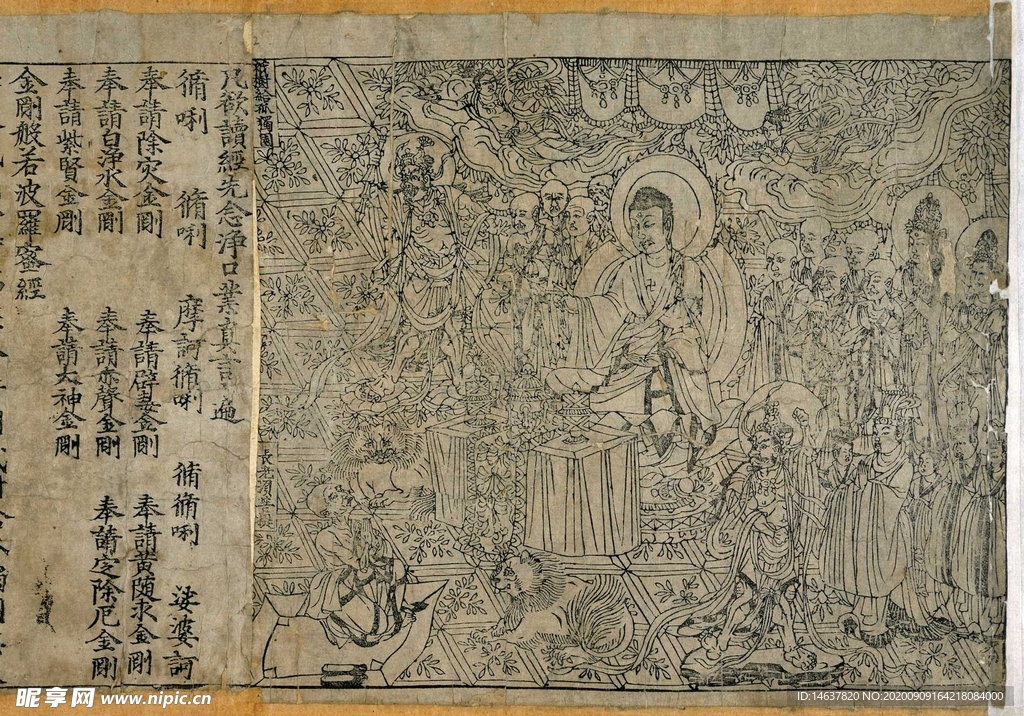 祇樹給孤獨園
長老須菩提
凡欲讀經先念淨口業真言一遍
脩唎 脩唎 摩訶脩唎 脩脩唎 娑婆訶
奉請除灾金剛 奉請辟毒金剛 奉請黃随求金剛
奉請白淨水金剛 奉請赤聲金剛 奉請定除厄金剛
奉請紫賢金剛 奉請大神金剛
金剛般若波羅蜜經
昵享网 www.nipic.cn
ID:14637820 NO:20200909164218084000